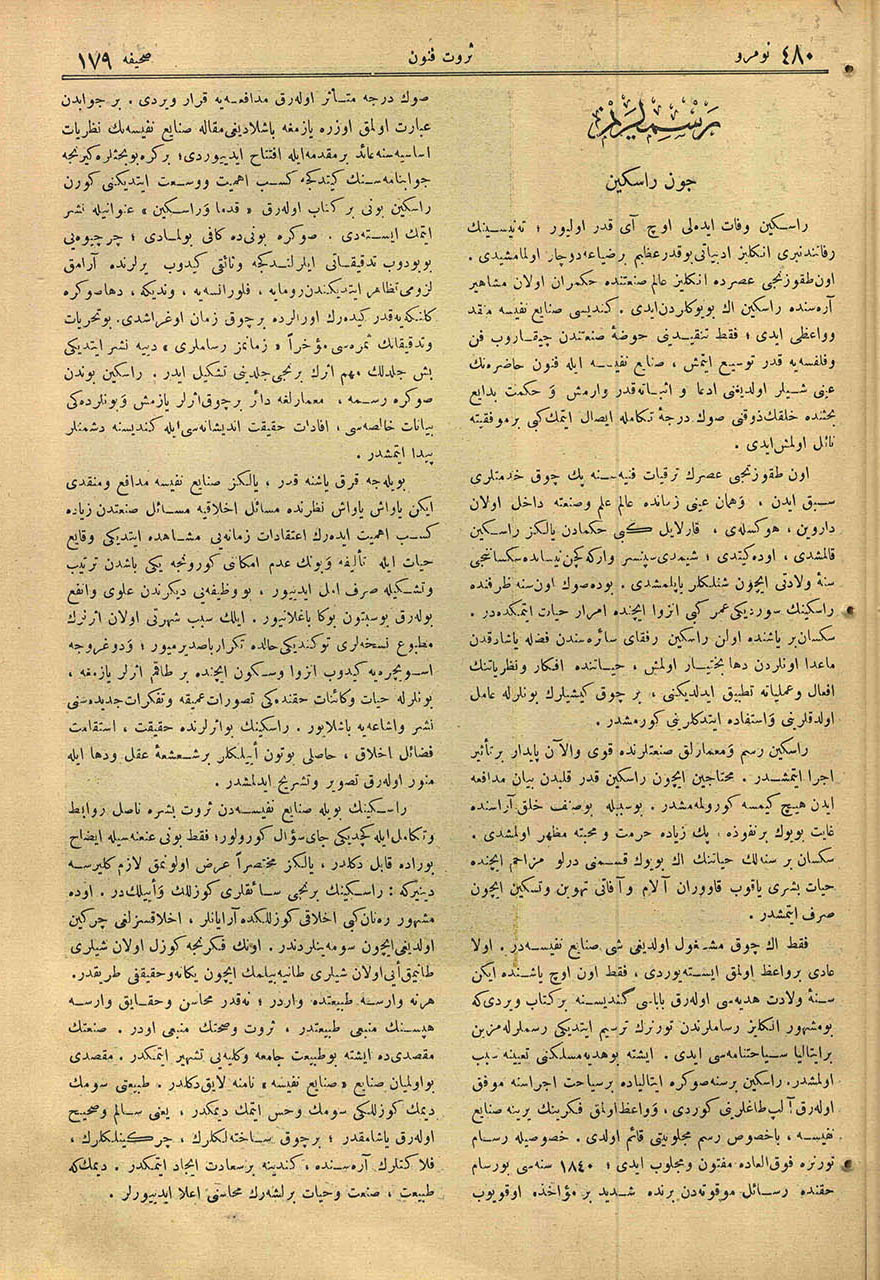 نومرو ٤٨٠
ثروت فنون
صحيفه ١٧٩
رسملريمز
جون راسكين
راسكين وفات ايده‌لی اوچ آی قدر اوليور ؛ ته‌نيسينك
رفاتندنبری انكليز ادبياتی بوقدر عظيم برضياعه دوچار اولمامشيدی .
اون‌طقوزنجی عصرده انكليز عالم صنعتنده حكمران اولان مشاهير
آره‌سنده راسكين اك بويوكلردن‌ايدی . كنديسی صنايع نفيسه منقد
وواعظی ايدی ؛ فقط تنقيدينی حوضهٔ صنعتدن چيقاروب فن
وفلسفه‌يه قدر توسيع ايتمش ، صنايع نفيسه ايله فنون حاضره‌نك
عينی شيلر اولديغنی ادعا و اثباته‌قدر وارمش و حكمت بدايع
بحثنده خلقك‌ذوقنی صوك درجهٔ تكامله ايصال ايتمك‌كبی برموفقيته
نائل اولمش‌ايدی .
اون طقوزنجی عصرك ترقيات فنيه‌سنه پك چوق خدمتلری
سبق ايدن ، وهمان عينی زمانده عالم علم وصنعته داخل اولان
داروين ، هوكسله‌ی ، قارلايل كبی حكمادن يالكز راسكين
قالمشدی ، اوده‌كيتدی ؛ شيمدی‌سپنسر واركه‌كچن‌نيسانده‌سكساننجی
سنهٔ ولادتی ايچون شنلكلر ياپلمشدی . بوده‌صوك اون‌سنه ظرفنده
راسكينك سورديكی‌عمر كبی انزوا ايچنده امرار حيات ايتمكده‌در .
سكسان‌بر ياشنده اولن راسكين رفقای سائره‌سندن فضله ياشارقدن
ماعدا اونلردن دها بختيار اولمش ، حياتنده افكار ونظرياتنك
افعال وعملياته تطبيق ايدلديكنی ، بر چوق كيشيلرك بونلرله عامل
اولدقلرينی واستفاده ايتدكلرينی كورمشدر .
راسكين رسم ومعمارلق صنعتلرنده قوی والآن پايدار برتأثير
اجرا ايتمشدر . محتاجين ايچون راسكين قدر قلبدن بيان مدافعه
ايدن هيچ كيمسه كورولمه‌مشدر . بوسببله بوصنف خلق آراسنده
غايت بويوك برنفوذه ، پك زياده حرمت و محبته مظهر اولمشدی .
سكسان بر سنه‌لك حياتنك اك بويوك قسمنی درلو مزاحم ايچنده
حيات بشری ياقوب قاووران آلام وآفاتی تهوين وتسكين ايچون
صرف ايتمشدر .
فقط اك چوق مشغول اولديغی شی صنايع نفيسه‌در . اولا
عادی برواعظ اولمق ايسته‌يوردی ، فقط اون اوچ ياشنده ايكن
سنهٔ ولادت هديه‌سی اوله‌رق باباسی كنديسنه بركتاب ويردی‌كه
بومشهور انكليز رساملرندن تورنرك ترسيم ايتديكی رسملرله‌مزين
برايتاليا سياحتنامه‌سی ايدی . ايشته بوهديه‌مسلكنی تعيينه سبب
اولمشدر. راسكين برسنه‌صوكره ايتالياده برسياحت اجراسنه موفق
اوله‌رق آلپ‌طاغلرينی كوردی ، وواعظ‌اولمق فكرينك يرينه صنايع
نفيسه ، باخصوص رسم مجلوبيتی قائم اولدی . خصوصيله رسام
تورنره فوق‌العاده مفتون ومجلوب ايدی ؛ ١٨٤٠ سنه‌سی بورسام
حقنده رسائل موقوته‌دن برنده شديد بر مؤاخذه اوقويوب
صوك درجه متأثر اوله‌رق مدافعه‌يه قرار ويردی . بر جوابدن
عبارت اولمق اوزره يازمغه باشلاديغی‌مقاله صنايع نفيسه‌نك نظريات
اساسيه‌سنه عائد برمقدمه‌ايله افتتاح ايديیوردی ؛ بركره‌بوبحثلره‌كيرنجه
جوابنامه‌سنك كيتدكجه كسب اهميت ووسعت ايتديكنی كورن
راسكين بونی بر كتاب اوله‌رق « قدما وراسكين » عنوانيله نشر
ايتمك ايسته‌دی . صوكره بونی‌ده كافی بولمادی ؛ چرچيوه‌يی
بويودوب تدقيقاتی ايلرلتدكجه وثائقی كيدوب يرلرنده آرامق
لزومی‌تظاهر ايتديكندن‌رومايه ، فلورانسه‌يه ، ونديكه ، دهاصوكره
كاننكه‌يه‌قدر كيده‌رك اورالرده برچوق زمان اوغراشدی. بوتحريات
وتدقيقاتك ثمره‌سی مؤخراً « زمانمز رساملری » دييه نشر ايتديكی
بش جلدلك مهم اثرك برنجی‌جلدينی تشكيل ايدر . راسكين بوندن
صوكره رسمه ، معمارلغه دائر برچوق‌اثرلر يازمش وبونلرده‌كی
بيانات خالصه‌سی ، افادات حقيقت انديشانه‌سی‌ايله كنديسنه دشمنلر
پيدا ايتمشدر .
بويله‌جه قرق ياشنه قدر ، يالكز صنايع نفيسه مدافع ومنقدی
ايكن ياواش ياواش نظرنده مسائل اخلاقيه مسائل صنعتدن زياده
كسب اهميت ايده‌رك اعتقادات زمانه‌يی مشاهده ايتديكی وقايع
حيات ايله تأليفه وبونك عدم امكانی كورونجه يكی باشدن ترتيب
وتشكيله صرف امل ايديیور ، بووظيفه‌يی ديكرندن علوی وانفع
بوله‌رق بوسبتون بوكا باغلانيور . ايلك سبب شهرتی اولان اثرنك
مطبوع نسخه‌لری توكنديكی‌حالده تكرارباصديرميور ؛ ودوغروجه
اسويچره‌يه كيدوب انزوا وسكون ايچنده بر طاقم اثرلر يازمغه ،
بونلرله حيات وكائنات حقنده‌كی تصورات عميقه وتفكرات‌جديده‌سنی
نشر واشاعه‌يه باشلايور . راسكينك بواثرلرنده حقيقت ، استقامت
فضائل اخلاق ، حاصلی بوتون اييلكلر برشعشعهٔ عقل ودها ايله
منور اوله‌رق تصوير وتشريح ايدلمشدر .
راسكينك بويله صنايع نفيسه‌دن ثروت بشره ناصل روابط
وتكامل‌ايله‌كچديكی جای‌سؤال كورولور؛ فقط بونی عنعنه‌سيله ايضاح
بوراده قابل دكلدر ، يالكز مختصراً عرض اولونمق لازم كليرسه
دينيركه : راسكينك برنجی سائقلری كوزللك وأييلك‌در . اوده
مشهور ره‌نان‌كبی اخلاقی كوزللكده‌آرايانلر ، اخلاقسزلغی چركين
اولديغی‌ايچون سومه‌ينلردندر . اونك فكرنجه كوزل اولان شيلری
طانيمق‌أيی‌اولان شيلری طانيه‌بيلمك ايچون يكانه‌وحقيقی طريقدر.
هرنه وارسه طبيعتده واردر ؛ نه‌قدر محاسن وحقايق وارسه
هپسنك منبعی طبيعتدر ، ثروت وصحتك منبعی اودر . صنعتك
مقصدی‌ده ايشته بوطبيعت جامعه وكليه‌يی تشهير ايتمكدر . مقصدی
بواوليمان صنايع « صنايع نفيسه » نامنه لايق‌دكلدر . طبيعتی سومك
ديمك كوزللكی سومك وحس ايتمك ديمكدر ، يعنی سالم وصحيح
اوله‌رق ياشامقدر ؛ برچوق ساخته‌لكلرك ، چركينلكلرك ،
فلاكتلرك آره‌سنده ، كندينه برسعادت ايجاد ايتمكدر . ديمك‌كه
طبيعت ، صنعت وحيات برلشه‌رك محاسنی اعلا ايديیورلر .